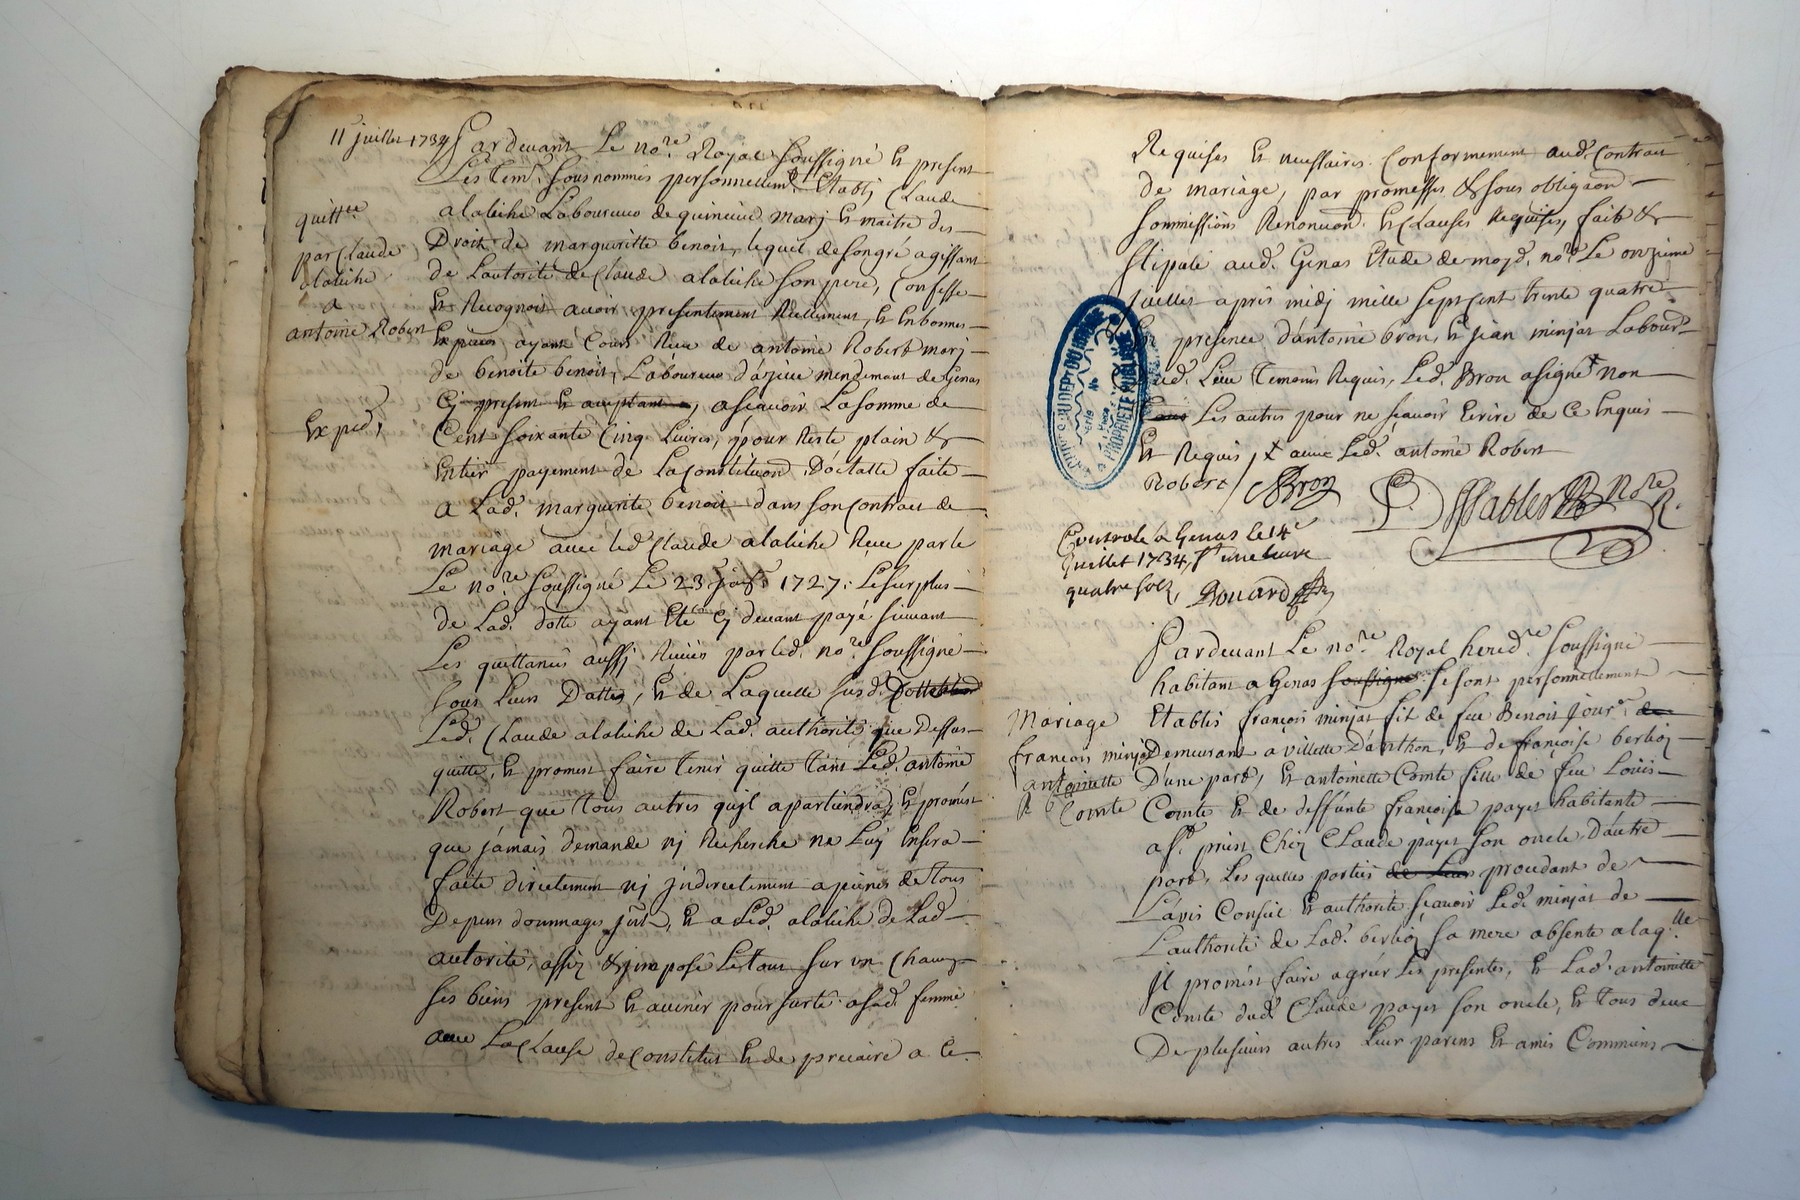 11 juillet 1734
quitt.ce
par Claude
alabiche
a
antoine Robert
Expéd,
Pardevant Le no.re Royal soussigné & present
Les tem. sous nommés personnellem.t Etably Claude
alabiche Laboureur de mary & maitre des
Droits de margueritte benoit, lequel de son gré agissant
de L'autorité de Claude alabiche son pere, Confesse
& Recognoit avoir presentement Reellement, & En bonnes
Espèces ayant Cours Reçu de antoine Robert mary
de benoite benoit, Laboureur d'azieu mendement de Genas
Cy present & acceptant, ascavoir La somme de
Cent soixante Cinq Livres, pour Reste plain &
Entier payement de La Constituõn Dotalle faite
a Lad. marguerite benoit dans son Contract de
mariage avec led. Claude alabiche Receu par le
Le no.re soussigné Le 23 1727: Le surplus
de Lad. dotte ayant Eté Cy devant payé suivant
Les quittances aussy Reçües par led. no.re soussigné
sous leurs Dattes, & de Laquelle susd.
Led. Claude alabiche de Lad. authorité que Dessus
quitte, & promest faire tenir quitte tant Led. antoine
Robert que tous autres qu'jl apartiendra, & promest
que jamais demande nj Recherche ne Luy En sera
faite directement nj jndirectement a peines de tous
Depens dommages jnts, & a Led. alabiche de Lad.
autorité, assis & jmposé Le tout sur un Chacun
ses biens present & avenir pour surté a sad. femme
avec La Clause de Constitut & de precaire a Ce
Requises & necessaires Conformement aud. Contract
de mariage, par promesses & sous obligaõns
sommissions Renonuõns & Clauses Requises, fait &
stipulé aud. Genas Etude de moyd. no.re Le onzieme
juillet après midj mille sept cent trente quatre
En presence d'antoine bron, & jean minjat Labour.rs
dud. Lieu temoins Requis, Led. Bron a signé non
Les autres pour ne scavoir Ecrire de Ce Enquis
& Requis / + avec Led. antoine Robert
Robert / Bron
Controlé a Genas le 14e
Juillet 1734,
quatre sols, Bouard
Pardevant Le no.re Royal hered.re soussigné
habitant a Genas soussigné se sont personnellement
Mariage
françois minjat
antoinette
Comte
Etablis françois minjat fil de feu Benoit jour.r de
Demeurant a Villette D'anthon, & de françoise berlioz
D'une part, & antoinette Comte fille de feu Louis
Comte & de deffunte françoise payet habitante
a St. priest Chez Claude payet son oncle D'autre
part, Les quelles parties de Leurs procedant de
L'avis Conseil & authorité scavoir Led. minjat de
L'authorité de Lad. berlioz sa mere absente a laq.lle
Jl promest faire agréer Les presentes, & Lad. antoinette
Comte dud. Claude payet son oncle, & tous deux
De plusieurs autres Leur parens & amis Communs